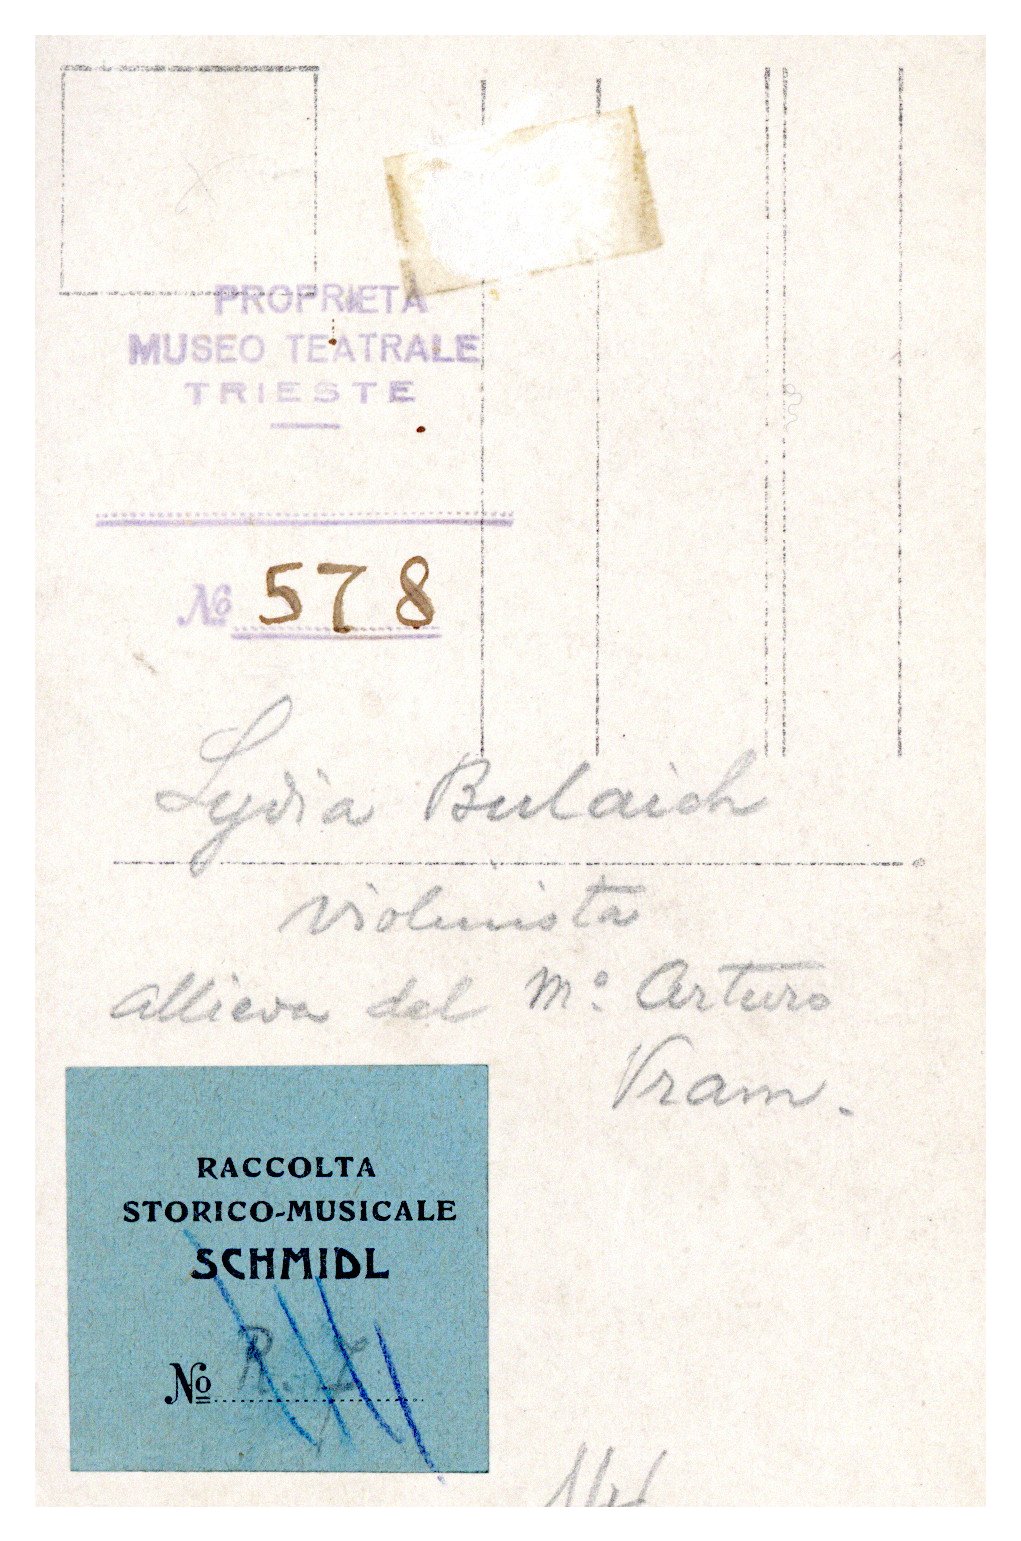 PROPRIETÀ
MUSEO TEATRALE
TRIESTE
No 578
Lydia Bulaich
violinista
allieva del Mo. Arturo
Vram.
RACCOLTA
STORICO-MUSICALE
SCHMIDL
No R.